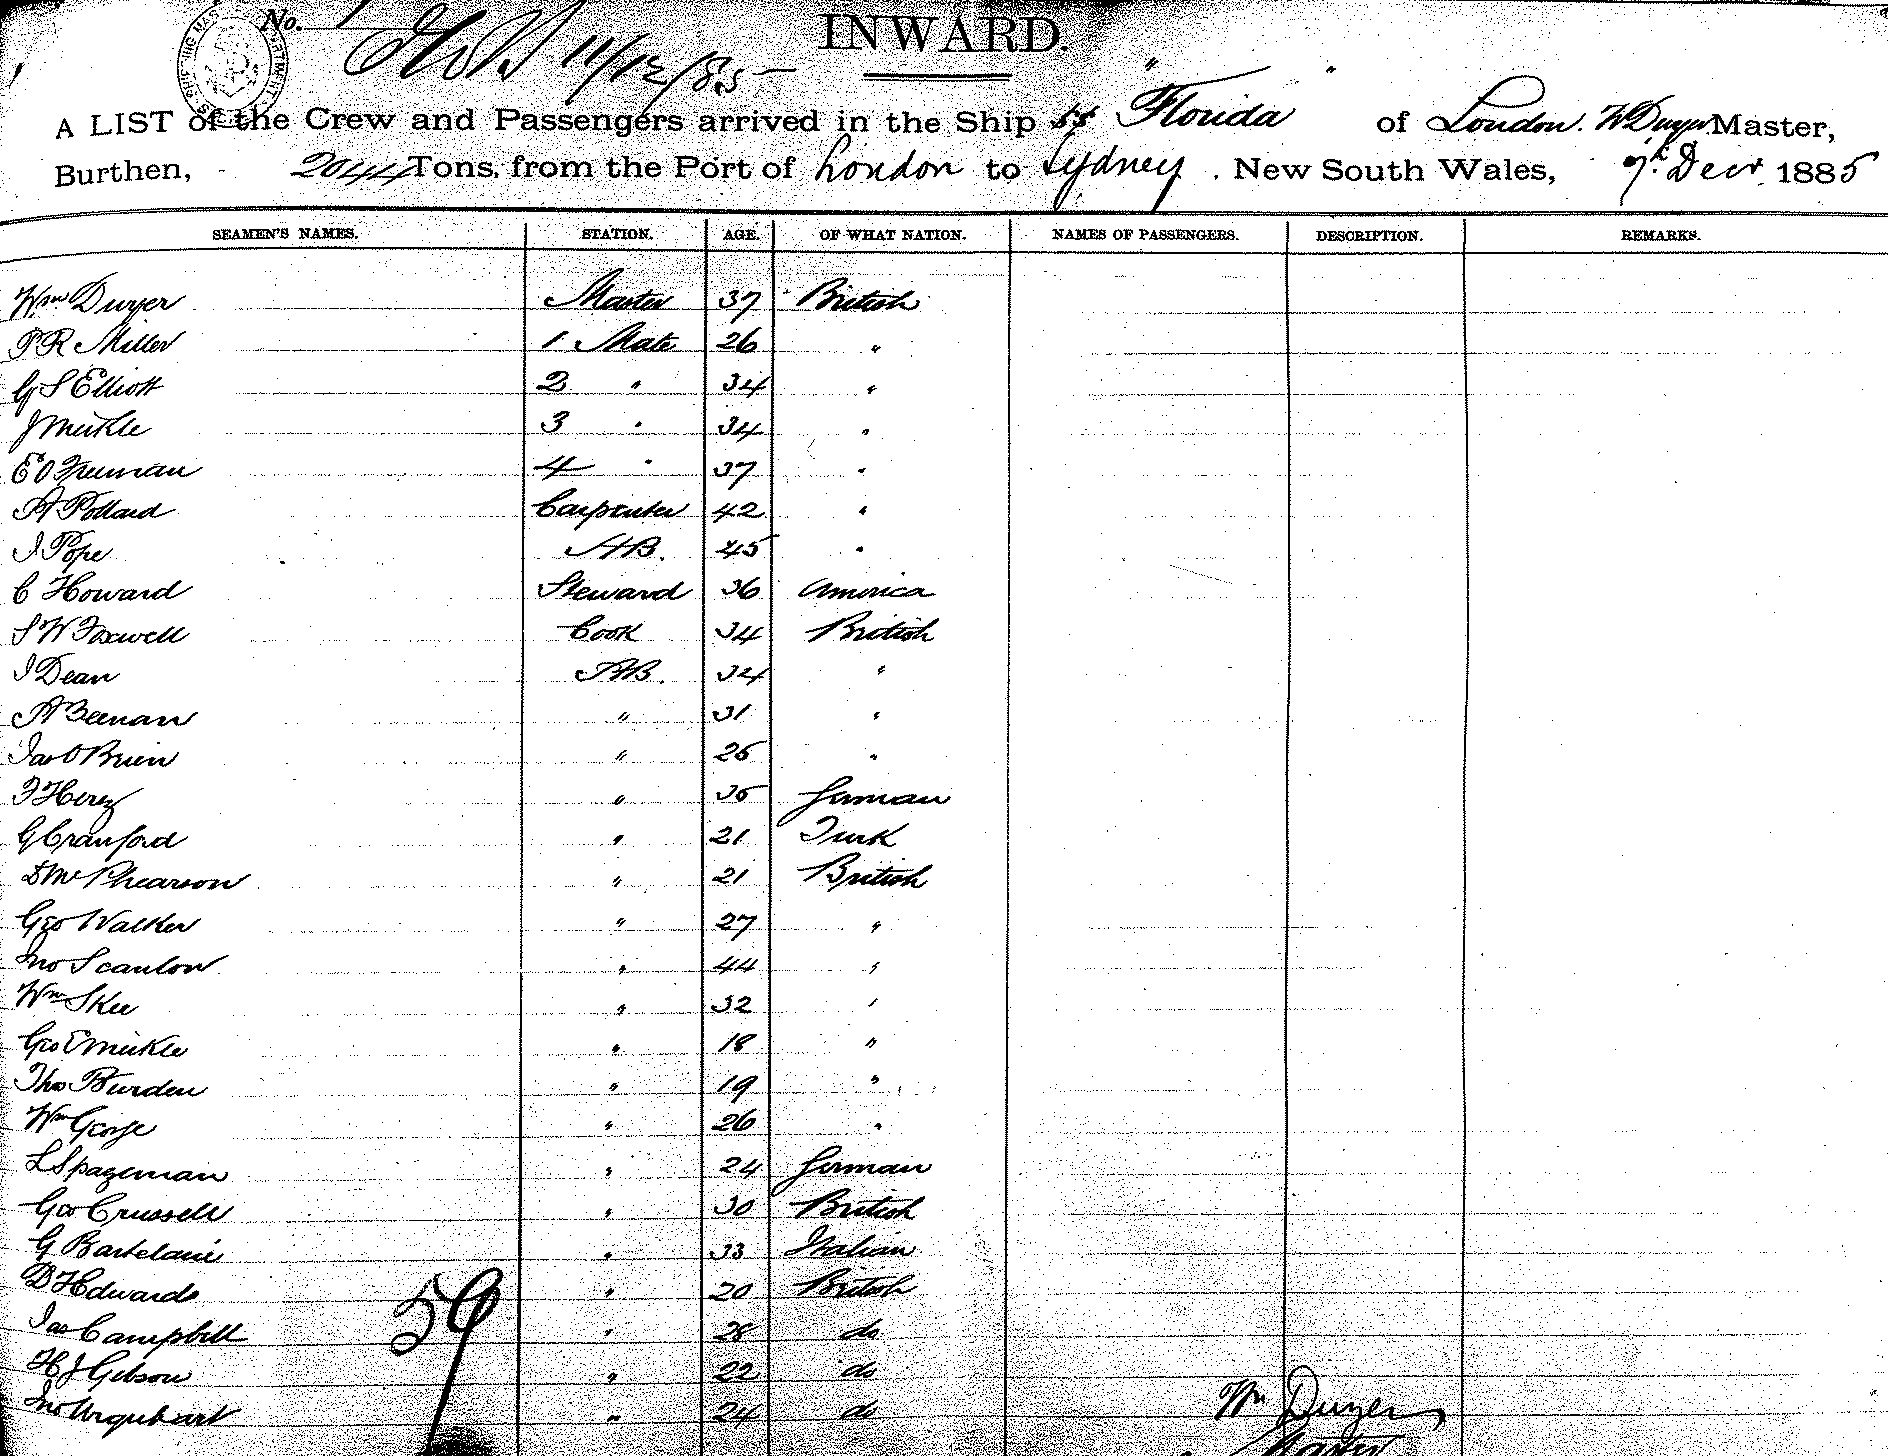 No. 1
11/12/85
INWARD.
A LIST of the Crew and Passengers arrived in the Ship SS "Florida" of London. W Dwyer Master,
Burthen, 2044 Tons, from the Port of London to Sydney. New South Wales, 7th Decr. 1885
SEAMEN'S NAMES. STATION. AGE. OF WHAT NATION. NAMES OF PASSENGERS. DESCRIPTION. REMARKS.
Wm Dwyer Master 37 British
P R Miller 1 Mate 26 "
G S Elliott 2 " 34 "
J Meikle 3 " 34 "
E O Freeman 4 " 37 "
A Pollard Carpenter 42 "
J Pope AB. 45 "
C Howard Steward 36 America
S W Foxwell Cook 34 British
J Dean AB. 34 "
A Beenan " 31 "
Jas O Brien " 25 "
F Herez " 35 German
G Cranford " 21 Turk
D McPhearson " 21 British
Geo Walker " 27 "
Jno Scanlon " 44 "
Wm Skee " 32 "
Geo E Meikle " 18 "
Thos Burden " 19 "
Wm George " 26 "
L Spageman " 24 German
Geo Crussell " 30 British
G Bartelanie " 33 Italian
D Hdwards " 20 British
59
Jas Campbell " 28 do
H J Gibson " 22 do
Jno Urquhart " 24 do
Wm Dwyer
Master